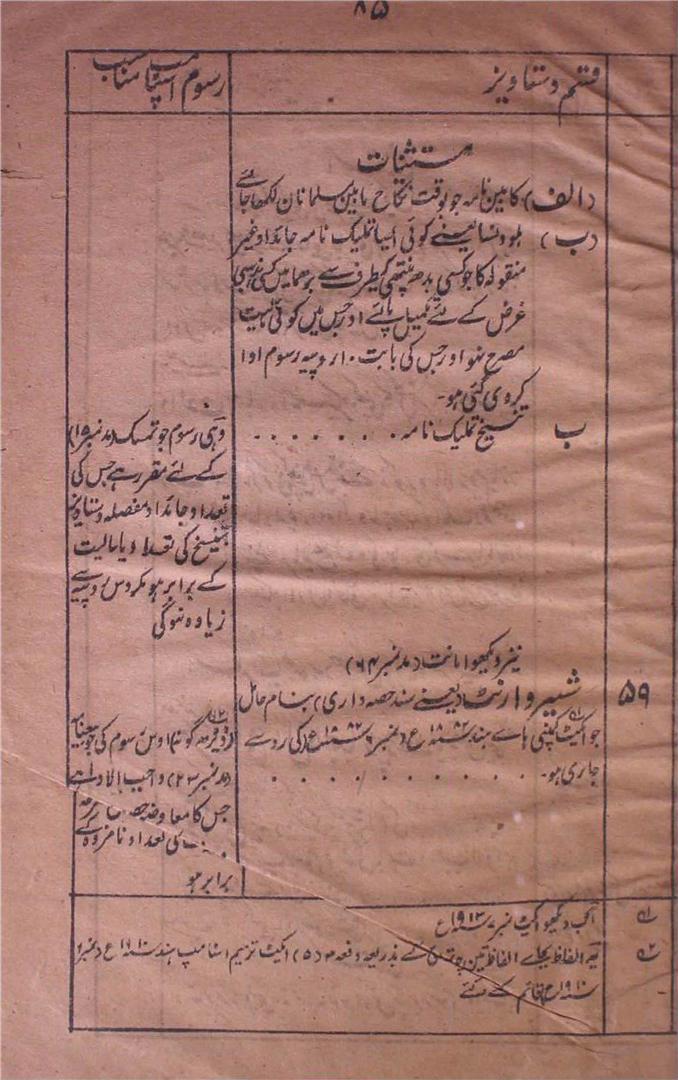 ۸۵
قسم دستاویز
رسوم اسٹامپ مناسب
مستثنات
(الف) کابین نامہ جو بوقت نکاح مابین مسلمانان لکھا جائے
(ب) ہلودنسا یعنے کوئی ایسا تملیک نامہ جائداد غیر
منقولہ کا جو کسی بدھ پنتھی کیطرف سے برھما میں کسی مذہبی
غرض کے لئے تکمیل پائے اور جس میں کوئی مالیت
مصرح نہو اور جس کی بابت ۱۰ روپیہ رسوم ادا
کر دی گئی ہو۔
ب تنسیخ تملیک نامہ . . . . . . . .
وہی رسوم جو تمسک (مد نمبر ۱۵)
کے لئے مقرر ہے جس کی
تعداد جائداد مفصلہ دستاویز
تنسیخ کی تعداد یا مالیت
کے برابر ہو مگر دس روپیہ سے
زیادہ نہوگی
نیز دیکھو امانت (مد نمبر ۶۴)
۵۹ شییر وارنٹ (یعنے سند حصہ داری) بنام حامل
جو ایکٹ کمپنی ہاے ہند سنہ ۱۸۸۲ ع (نمبر ۶ سنہ ۱۸۸۲ ع) کی رو سے
جاری ہو۔ . . . . . . . . . . .
گونہ اوس رسوم کی جو بیعنامہ
(مد نمبر ۲۳) واجب الادا ہے
جس کا معاوضہ
کی تعداد نامزدہ کے
برابر ہو
۱ اب دیکھو ایکٹ نمبر ۷ سنہ ۱۹۱۳ ع
۲ یہ الفاظ بجاے الفاظ کے بذریعہ دفعہ (۵) ایکٹ ترمیم اسٹامپ ہند سنہ ۱۹۱۰ ع (نمبر ۶
سنہ ۱۹۱۰ ع) قائم کئے گئے